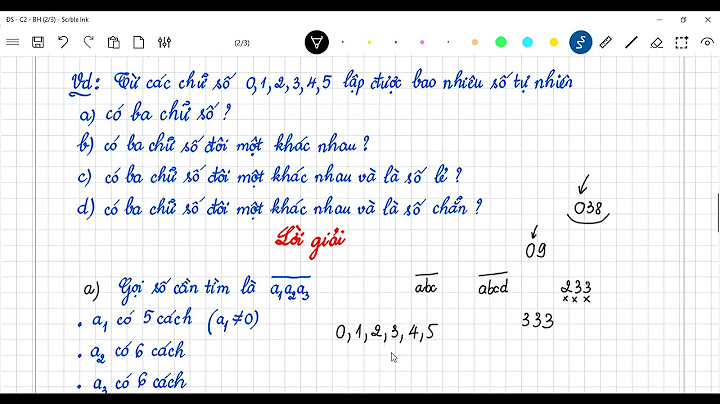 ĐS - C2 - BH (2/3) - Scrble Ink
(2/3)
Vd: Từ các chữ số 0,1,2,3,4,5 lập được bao nhiêu số tự nhiên
a) có ba chữ số ?
b) có ba chữ số đôi một khác nhau ?
c) có ba chữ số đôi một khác nhau và là số lẻ ?
d) có ba chữ số đôi một khác nhau và là số chẵn ?
038
Lời giải
09
a) Gọi số cần tìm là a₁a₂a₃
abc abcd 233
x x x
. a₁ có 5 cách (a₁ ≠ 0)
0,1,2,3,4,5
333
. a₂ có 6 cách
. a₃ có 6 cách